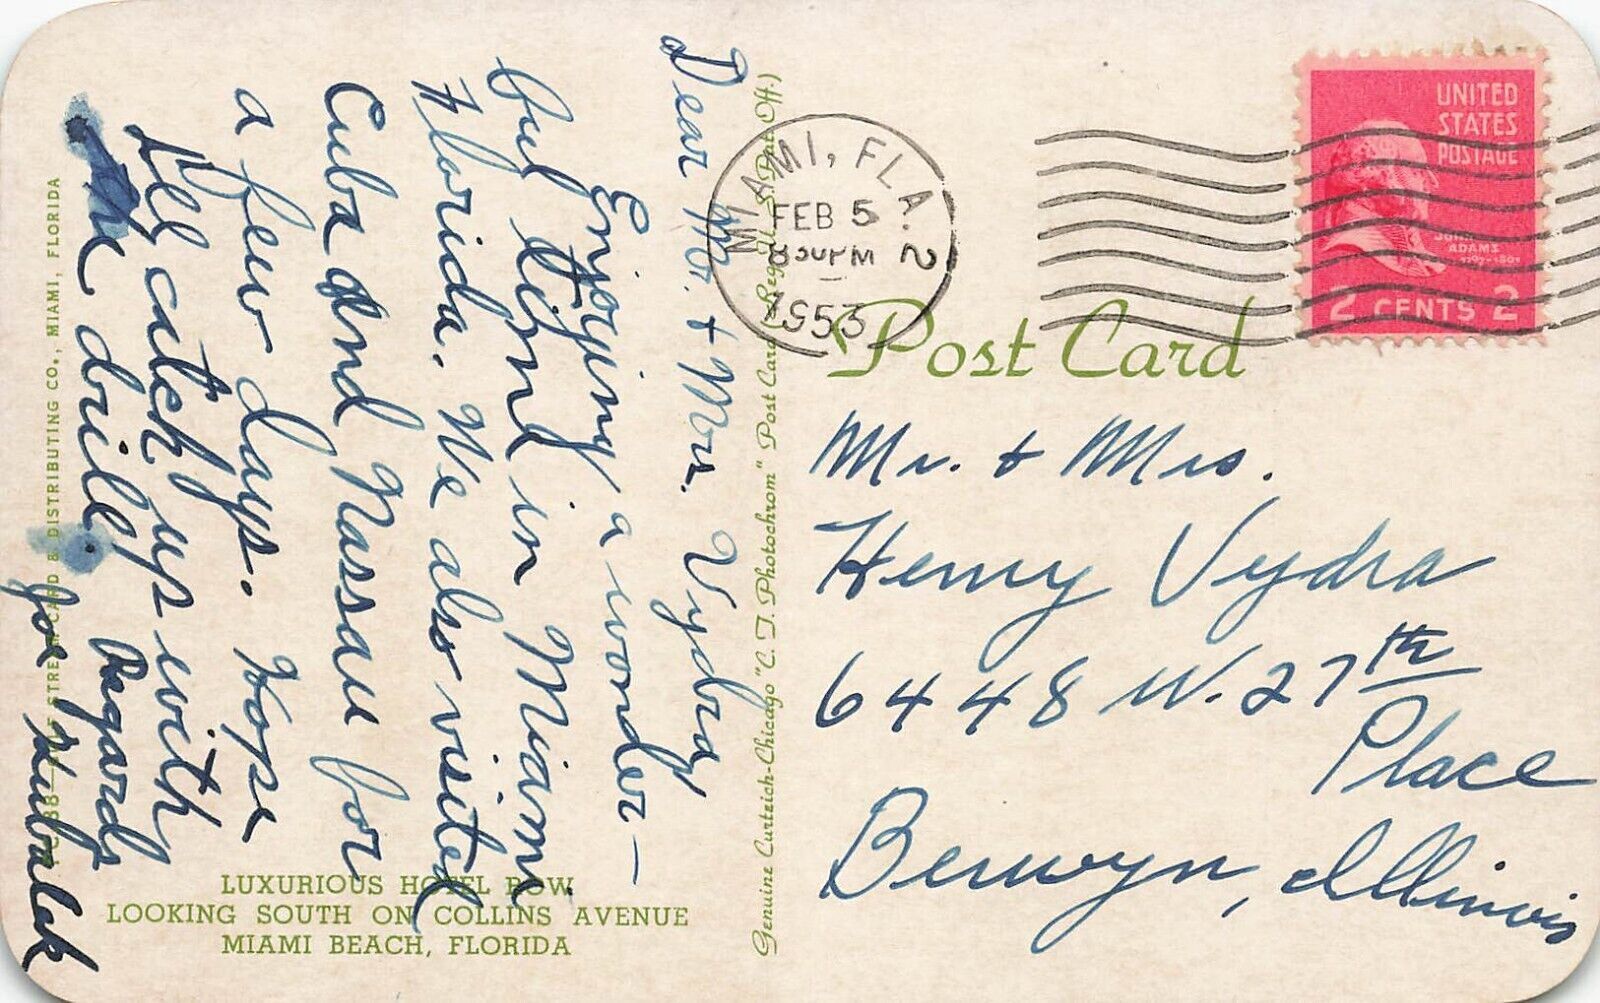 Dear Mr. & Mrs. Vydra,
Enjoying a wonder-
ful time in Miami
Florida. We also visited
Cuba and Nassau for
a few days. Hope
I'll catch up with
the drill.
Regards
Joe
LUXURIOUS HOTEL ROW
LOOKING SOUTH ON COLLINS AVENUE
MIAMI BEACH, FLORIDA
CARD & DISTRIBUTING CO., MIAMI, FLORIDA
Genuine Curteich-Chicago "C. T. Photochrom" Post Card (Reg. U. S. Pat. Off.)
MIAMI, FLA. 2
FEB 5
PM
1953
UNITED
STATES
POSTAGE
JOHN
ADAMS
1797-1801
2 CENTS 2
Post Card
Mr. & Mrs.
Henry Vydra
6448 W. 27th
Place
Berwyn, Illinois